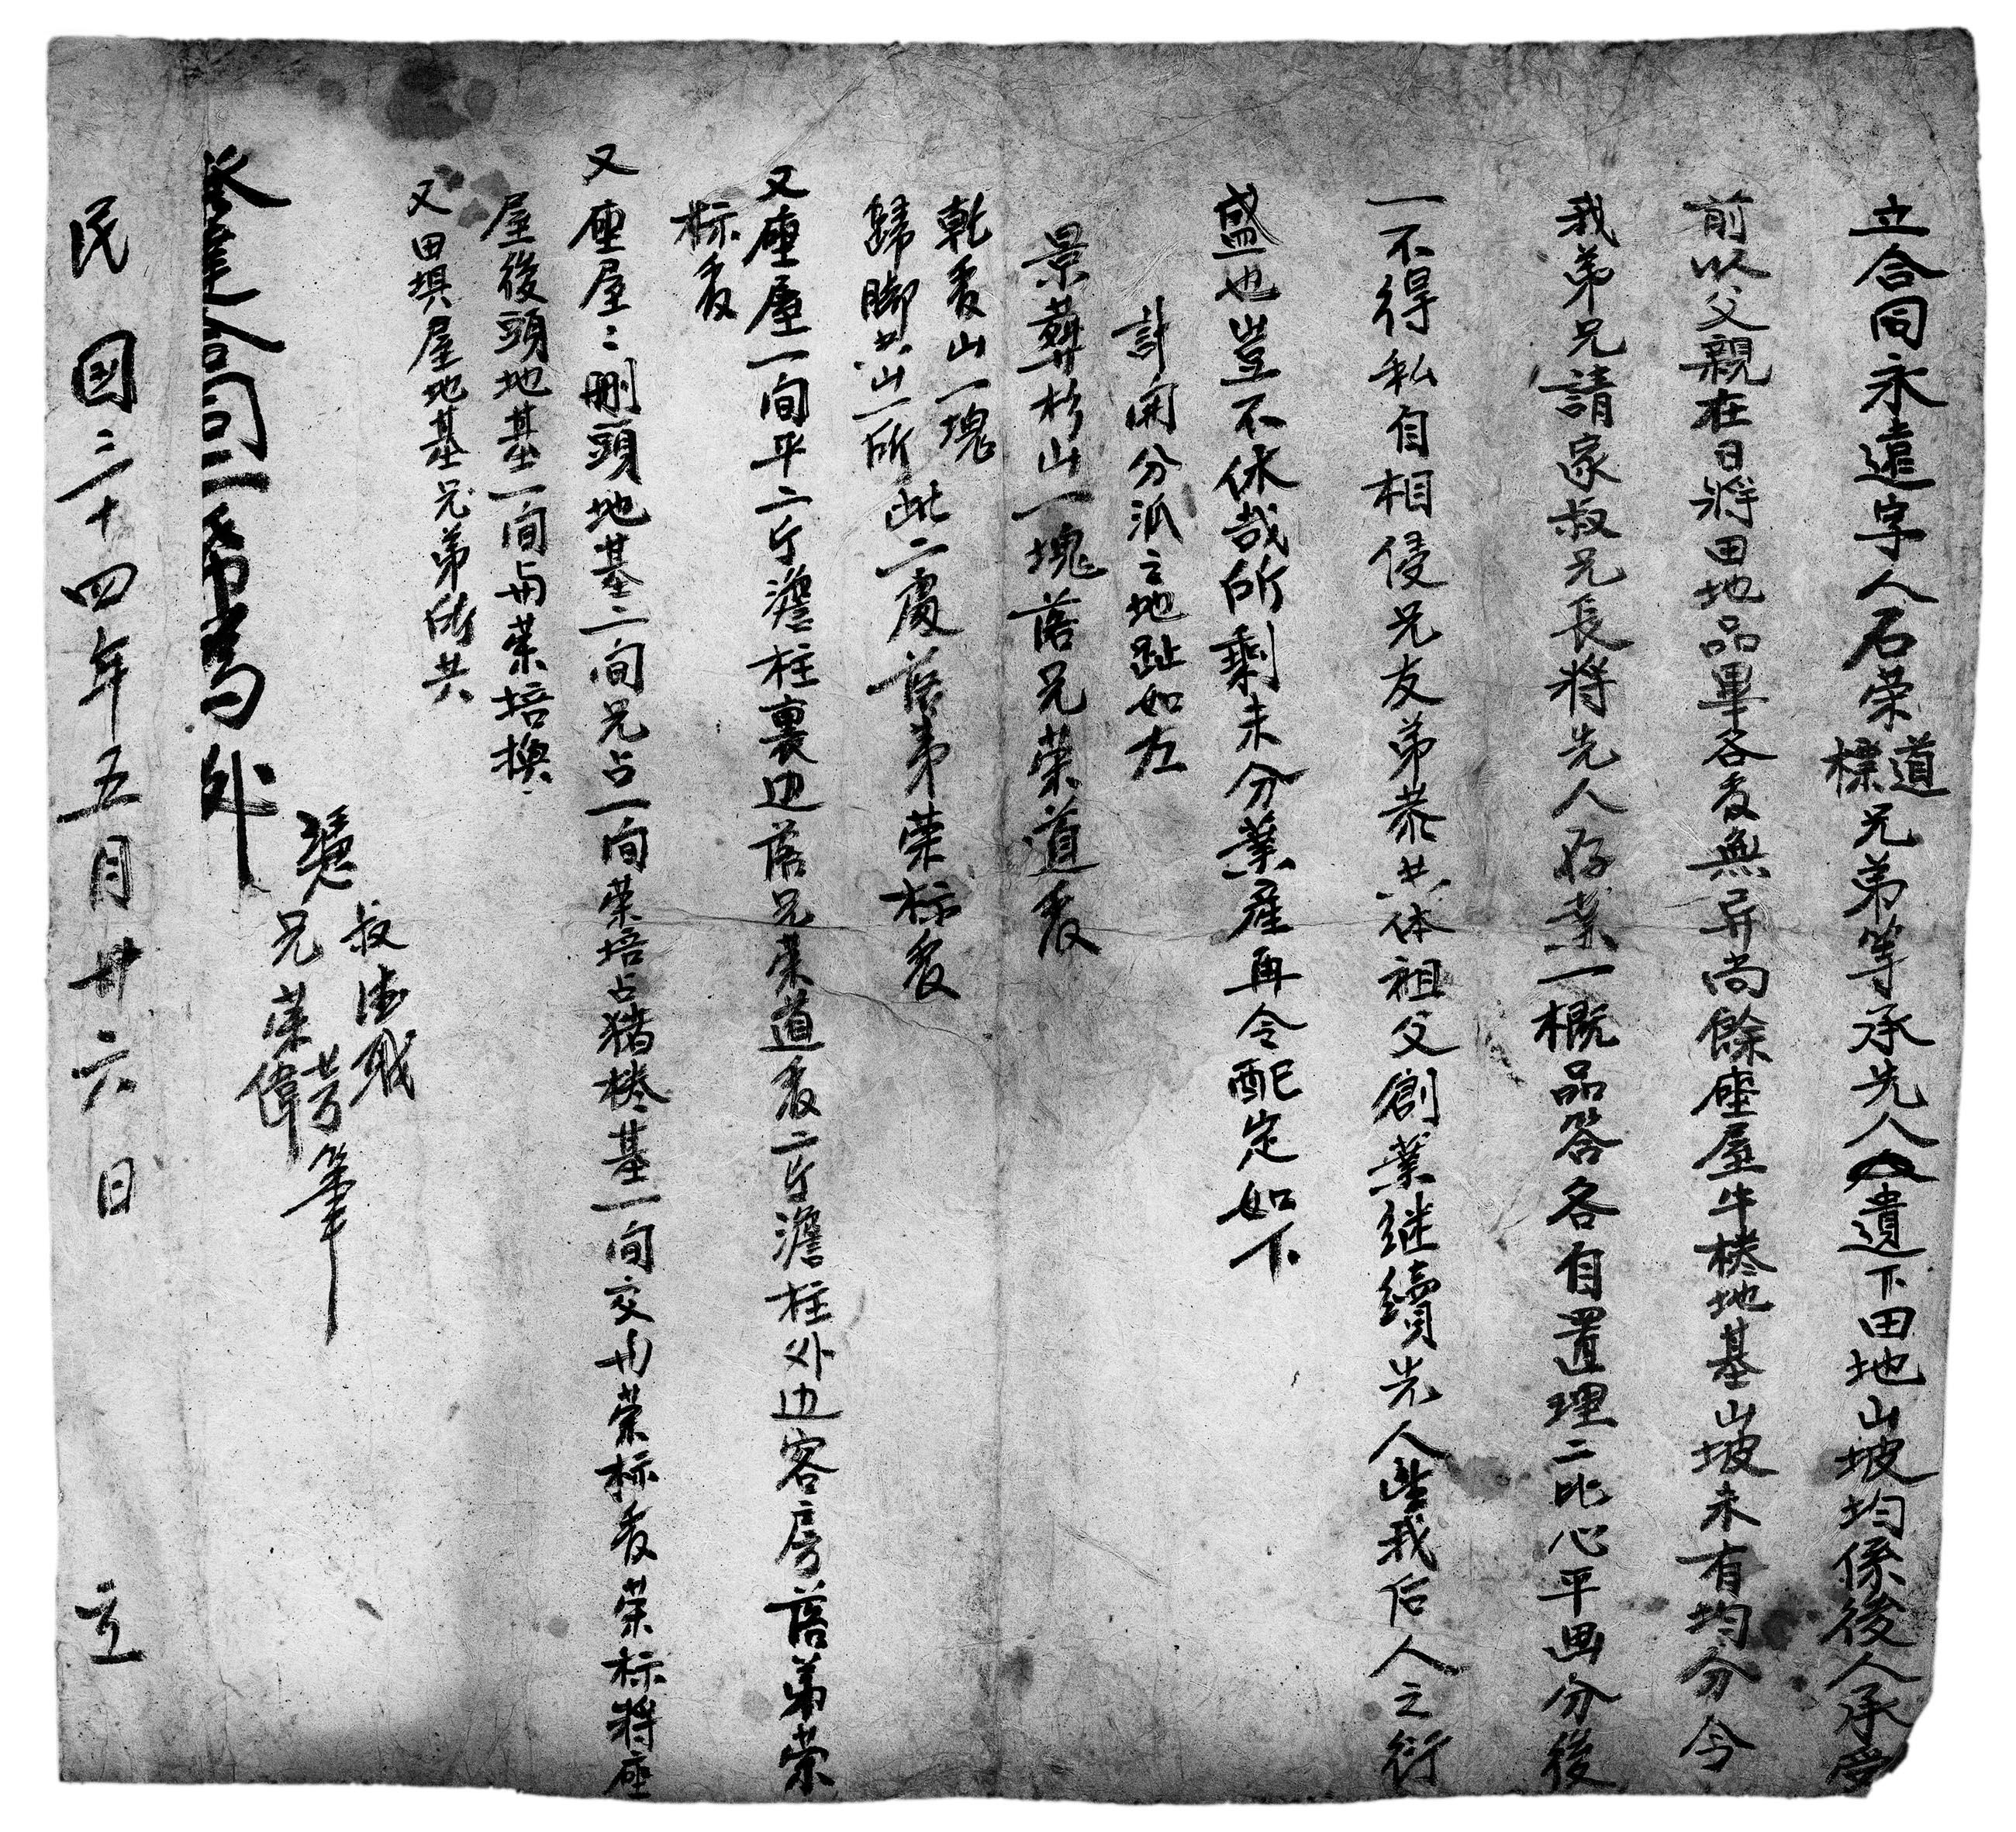 立合同永遠字人石荣道標兄弟等承先人遺下田地山坡均係後人承受
前以父親在日將田地品畢各受無异尚餘座屋牛棬地基山坡未有均分今
我弟兄請家叔兄長将先人存業一概品答各自置理二比心平画分後
一不得私自相侵兄友弟恭共体祖父創業继續先人啓我后人之衍
盛也豈不休哉所剩未分業產再令配定如下
計開分派之地趾如左
景葬杉山一塊落兄荣道受
乾受山一塊
歸脚共山一所此二處落弟荣标受
又座屋一间平二斤簷柱裏边落兄荣道受二斤簷柱外边客房落弟荣
标受
又座屋〻刪頭地基二间兄占一间荣培占猪棬基一间交与荣标受荣标將座
屋後頭地基一间与荣培换
又田垻屋地基兄弟所共
憑
叔德
兄荣芳偉
筆
發達合同二爲
民國三十四年五月廿六日 立